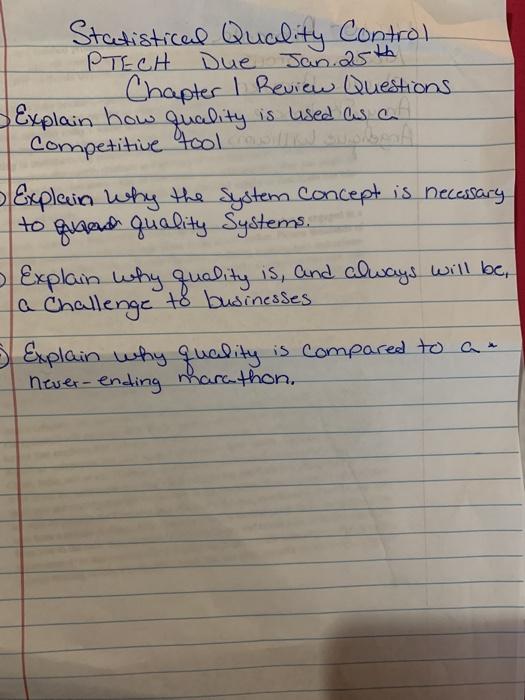 Statistical Quality Control
PTECH Due Jan. 25th
Chapter 1 Review Questions
Explain how quality is used as a
Competitive tool
Explain why the System Concept is necessary
to quality Systems.
Explain why quality is, and always will be,
a Challenge to businesses
Explain why quality is compared to a
never-ending marathon.